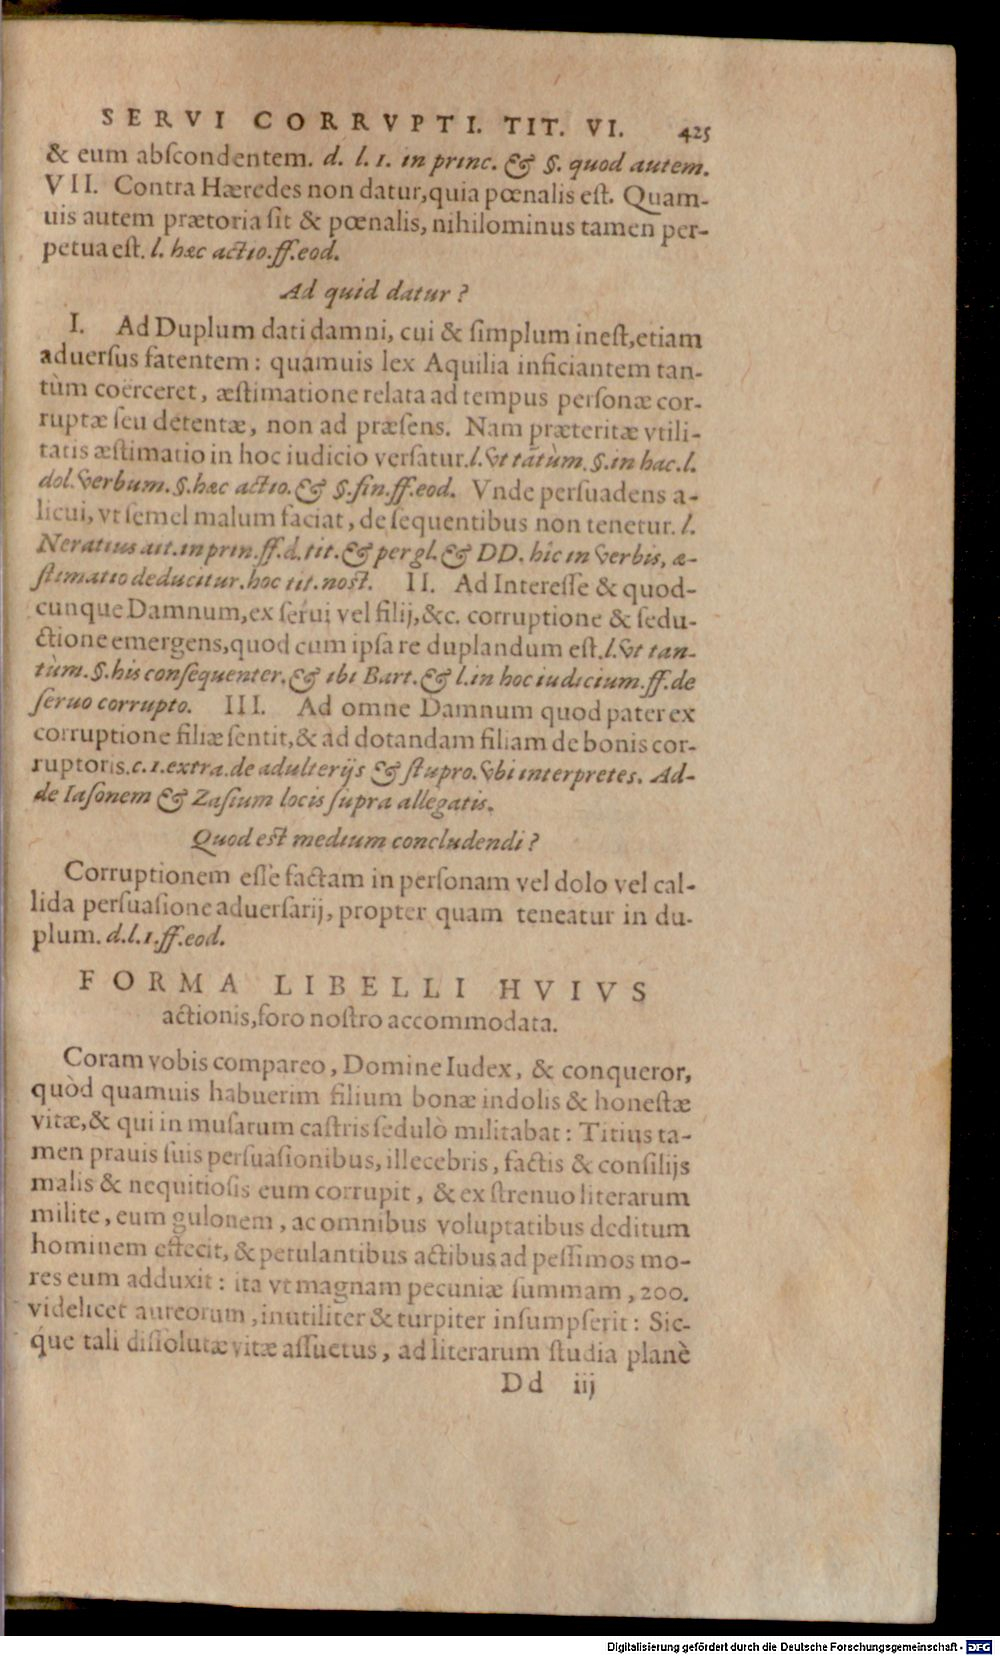 SERVI CORRVPTI. TIT. VI. 425
& eum abſcondentem. d. l. 1. in princ. & §. quod autem.
VII. Contra Hæredes non datur, quia pœnalis eſt. Quam-
uis autem prætoria ſit & pœnalis, nihilominus tamen per-
petua eſt. l. hæc actio. ff. eod.
Ad quid datur?
I. Ad Duplum dati damni, cui & ſimplum ineſt, etiam
aduerſus fatentem: quamuis lex Aquilia inficiantem tan-
tùm coërceret, æſtimatione relata ad tempus perſonæ cor-
ruptæ ſeu detentæ, non ad præſens. Nam præteritæ vtili-
tatis æſtimatio in hoc iudicio verſatur. l. vt tātùm. §. in hac. l.
dol. verbum. §. hæc actio. & §. fin. ff. eod. Vnde perſuadens a-
licui, vt ſemel malum faciat, de ſequentibus non tenetur. l.
Neratius ait. in prin. ff. d. tit. & per gl. & DD. hîc in verbis, æ-
ſtimatio deducitur. hoc tit. noſt. II. Ad Intereſſe & quod-
cunque Damnum, ex ſerui vel filij, &c. corruptione & ſedu-
ctione emergens, quod cum ipſa re duplandum eſt. l. vt tan-
tùm. §. his conſequenter. & ibi Bart. & l. in hoc iudicium. ff. de
ſeruo corrupto. III. Ad omne Damnum quod pater ex
corruptione filiæ ſentit, & ad dotandam filiam de bonis cor-
ruptoris. c. 1. extra. de adulterijs & ſtupro. vbi interpretes. Ad-
de Iaſonem & Zaſium locis ſupra allegatis.
Quod eſt medium concludendi?
Corruptionem eſſe factam in perſonam vel dolo vel cal-
lida perſuaſione aduerſarij, propter quam teneatur in du-
plum. d. l. 1. ff. eod.
FORMA LIBELLI HVIVS
actionis, foro noſtro accommodata.
Coram vobis compareo, Domine Iudex, & conqueror,
quòd quamuis habuerim filium bonæ indolis & honeſtæ
vitæ, & qui in muſarum caſtris ſedulò militabat: Titius ta-
men prauis ſuis perſuaſionibus, illecebris, factis & conſilijs
malis & nequitioſis eum corrupit, & ex ſtrenuo literarum
milite, eum gulonem, ac omnibus voluptatibus deditum
hominem effecit, & petulantibus actibus ad peſſimos mo-
res eum adduxit: ita vt magnam pecuniæ ſummam, 200.
videlicet aureorum, inutiliter & turpiter inſumpſerit: Sic-
que tali diſſolutæ vitæ aſſuetus, ad literarum ſtudia planè
Dd iij
Digitalisierung gefördert durch die Deutsche Forschungsgemeinschaft - DFG